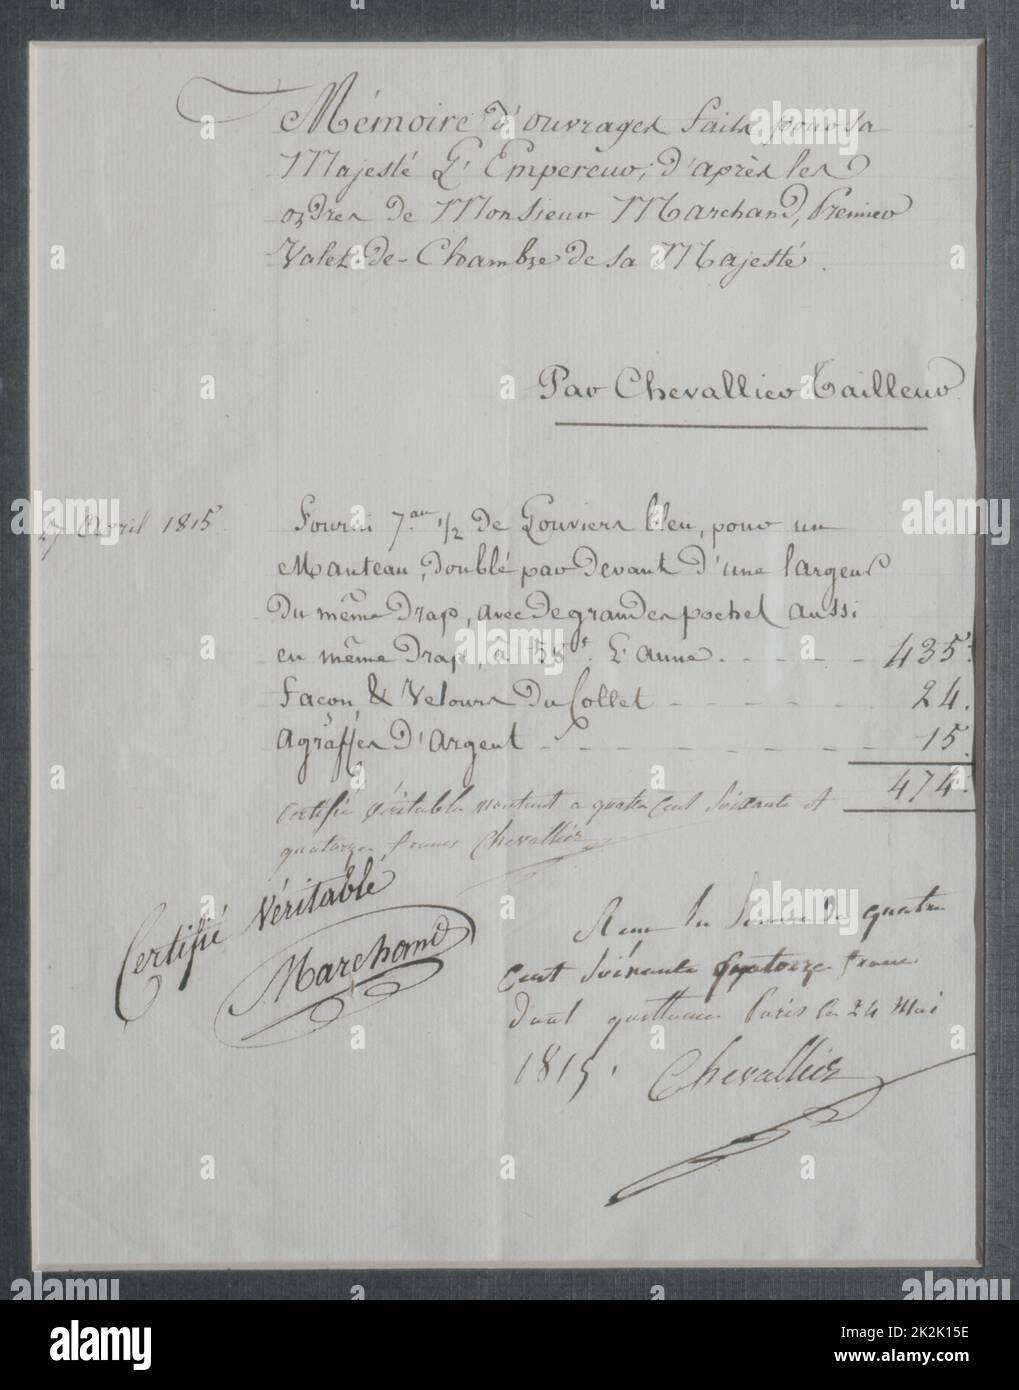 Mémoire d'ouvrages faits pour sa
Majesté L'Empereur, d'après les
ordres de Monsieur Marchand, Premier
Valet-de-Chambre de sa Majesté.
Par Chevallier Tailleur
Avril 1815
Fourni 7 au. 1/2 de Louviers bleu, pour un
Manteau, doublé par devant d'une largeur
Du même Drap, avec de grandes poches aussi
en même Drap, à 58 f. L'aune. 435.
Façon, & Velours Du Collet 24.
Agraffes D'Argent 15.
474.
Certifié véritable montant a quatre Cent Soixante et
quatorze francs Chevallier
Certifié Véritable
Marchand
Reçu la Somme de quatre
Cent Soixante quatorze francs
dont quittance Paris le 24 Mai
1815. Chevallier
alamy
Image ID: 2K2K15E
www.alamy.com